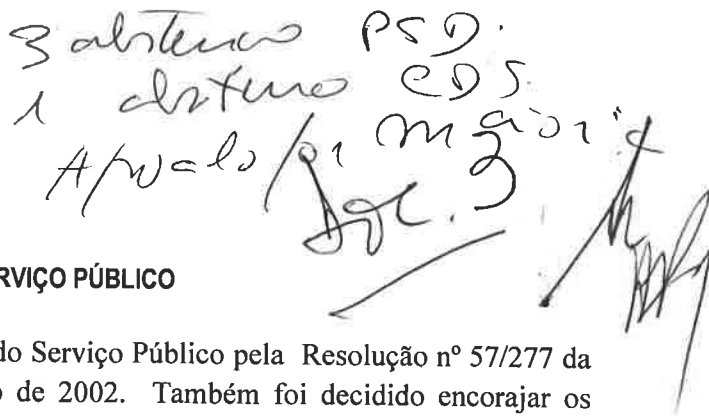 3 abstenções PSD.
1 abstenção CDS.
Aprovado por maioria
Doc. 3
RVIÇO PÚBLICO
do Serviço Público pela Resolução nº 57/277 da
o de 2002. Também foi decidido encorajar os